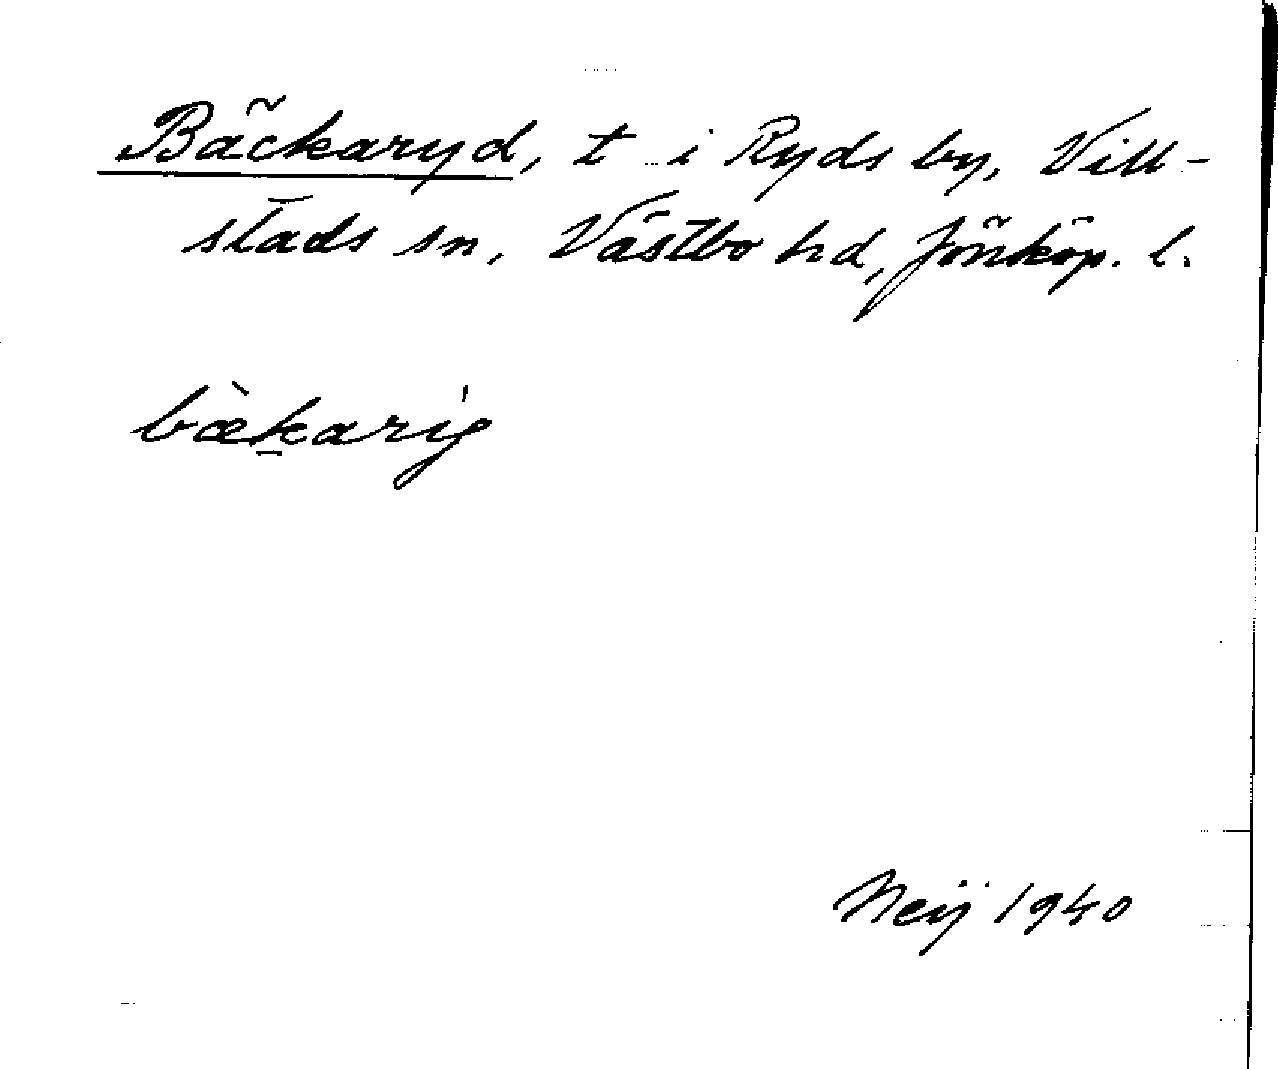 Bäckaryd, t i Ryds by, Vill-
stads sn, Västbo hd, Jönköp. l.
bæ̀k̠arig
Neij 1940